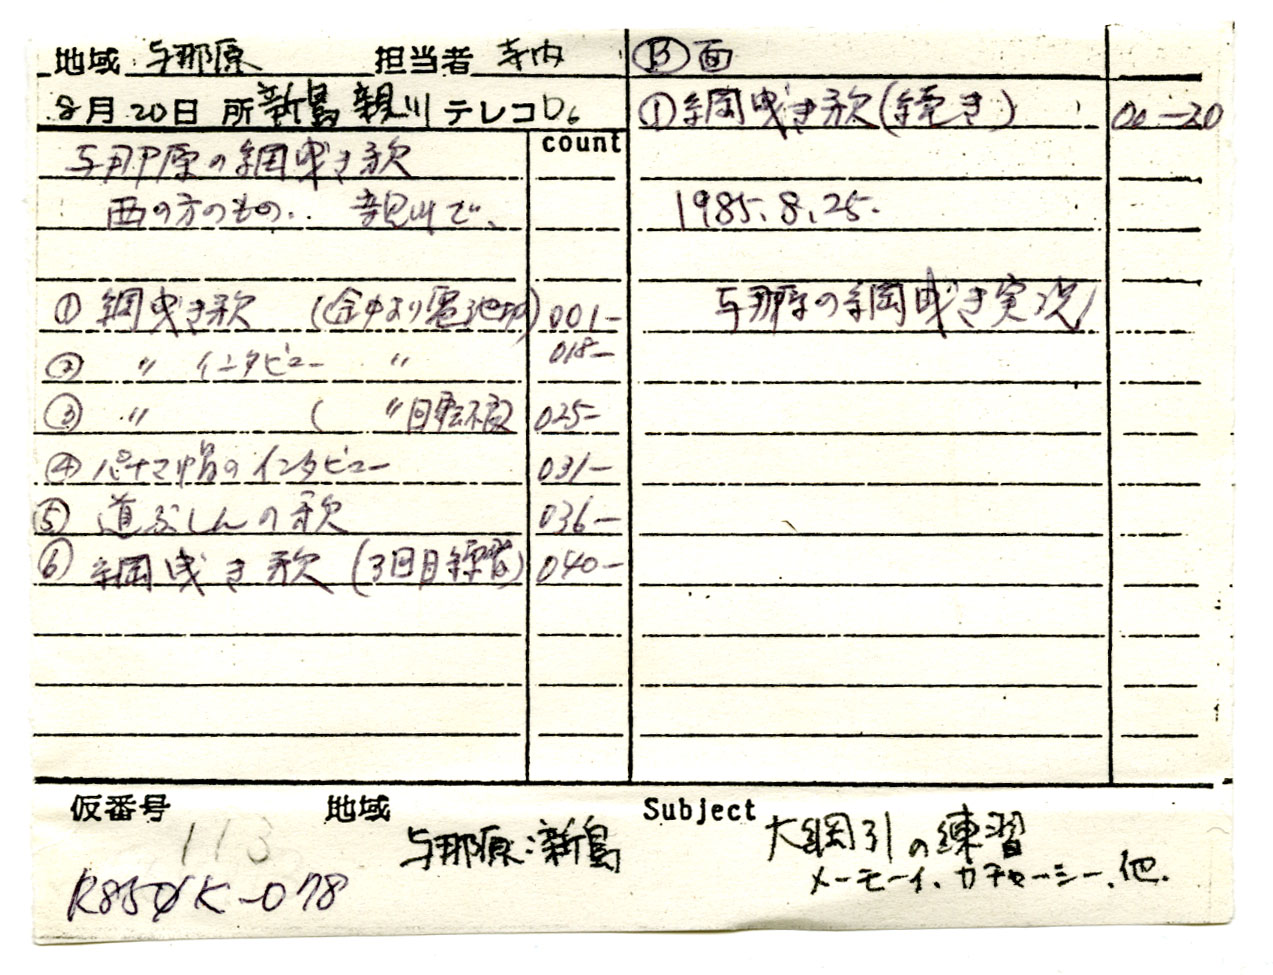 地域 与那原 担当者 寺内
8月20日 所 新島 親川 テレコ D6
count
与那原の綱曳き歌
西の方のもの. 親川で、
① 綱曳き歌 (途中より電池切) 001-
② 〃 インタビュー 〃 018-
③ 〃 ( 〃 回転不良 025-
④ パナマ帽のインタビュー 031-
⑤ 道ぶしんの歌 036-
⑥ 綱曳き歌 (3回目練習) 040-
Ⓑ面
① 綱曳き歌(続き) 00-20
1985.8.25.
与那原の綱曳き実況
仮番号 113
R850K-078
地域 与那原:新島
Subject 大綱引の練習
メーモーイ、カチャーシー、他.